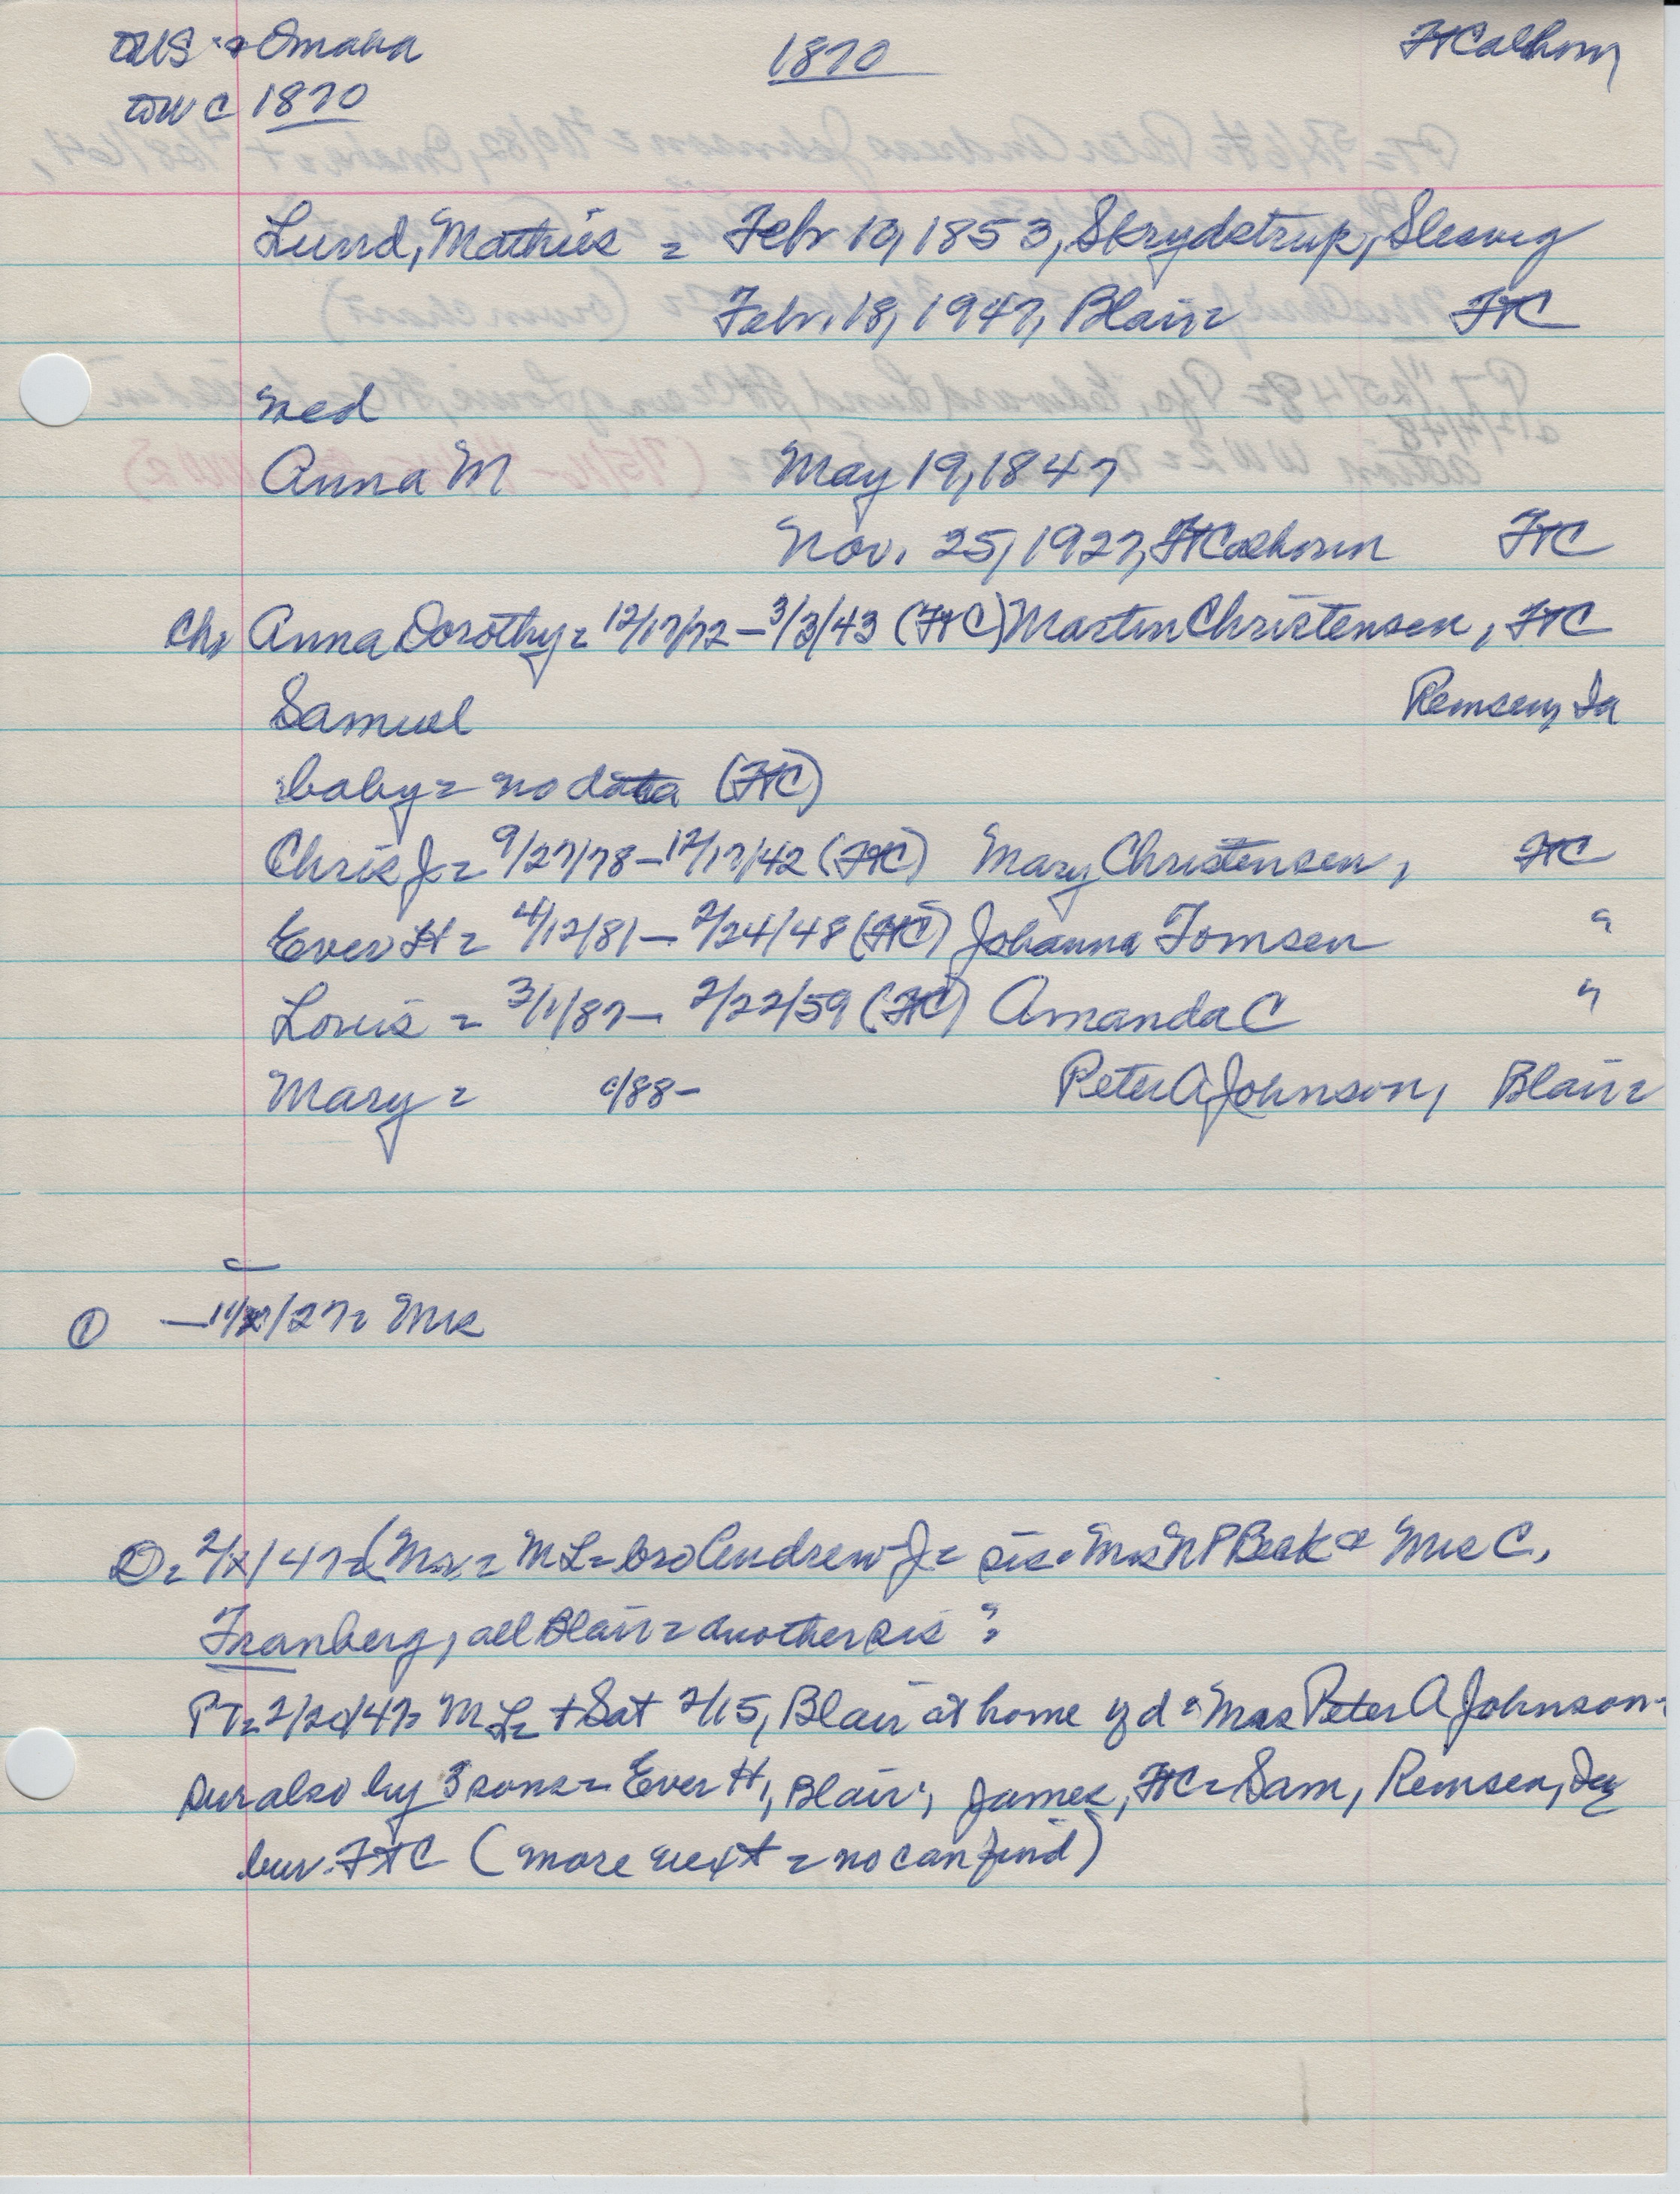 toUS → Omaha 1870 FtCalhoun
toWC 1870
Lund, Mathies = Febr 10, 1853, Skrydstrup, Slesvig
Febr. 18, 1947, Blair FtC
ned
Anna M May 19, 1847
Nov. 25, 1927, FtCalhoun FtC
Ch: Anna Dorothy = 12/17/72 – 3/3/43 (FtC) Martin Christensen, FtC
Samuel Remsen, Ia
baby = no data (FtC)
Chris J = 9/27/78 – 12/17/42 (FtC) Mary Christensen, FtC
Ever H = 4/12/81 – 2/24/48 (FtC) Johanna Tomsen "
Louis = 3/1/87 – 2/22/59 (FtC) Amanda C "
Mary = c/88 – Peter A Johnson, Blair
① – 11/x/27 = Mrs
D = 2/x/47 = (Mr. = ML = bro Andrew J = sis = Mrs N P Beck & Mrs C.
Tranberg, all Blair = another sis ?
PT = 2/20/47 = ML = + Sat 2/15, Blair at home of d = Mrs Peter A Johnson =
sur also by 3 sons = Ever H, Blair; James, FtC = Sam, Remsen, Ia
bur. FtC (more next = no can find)